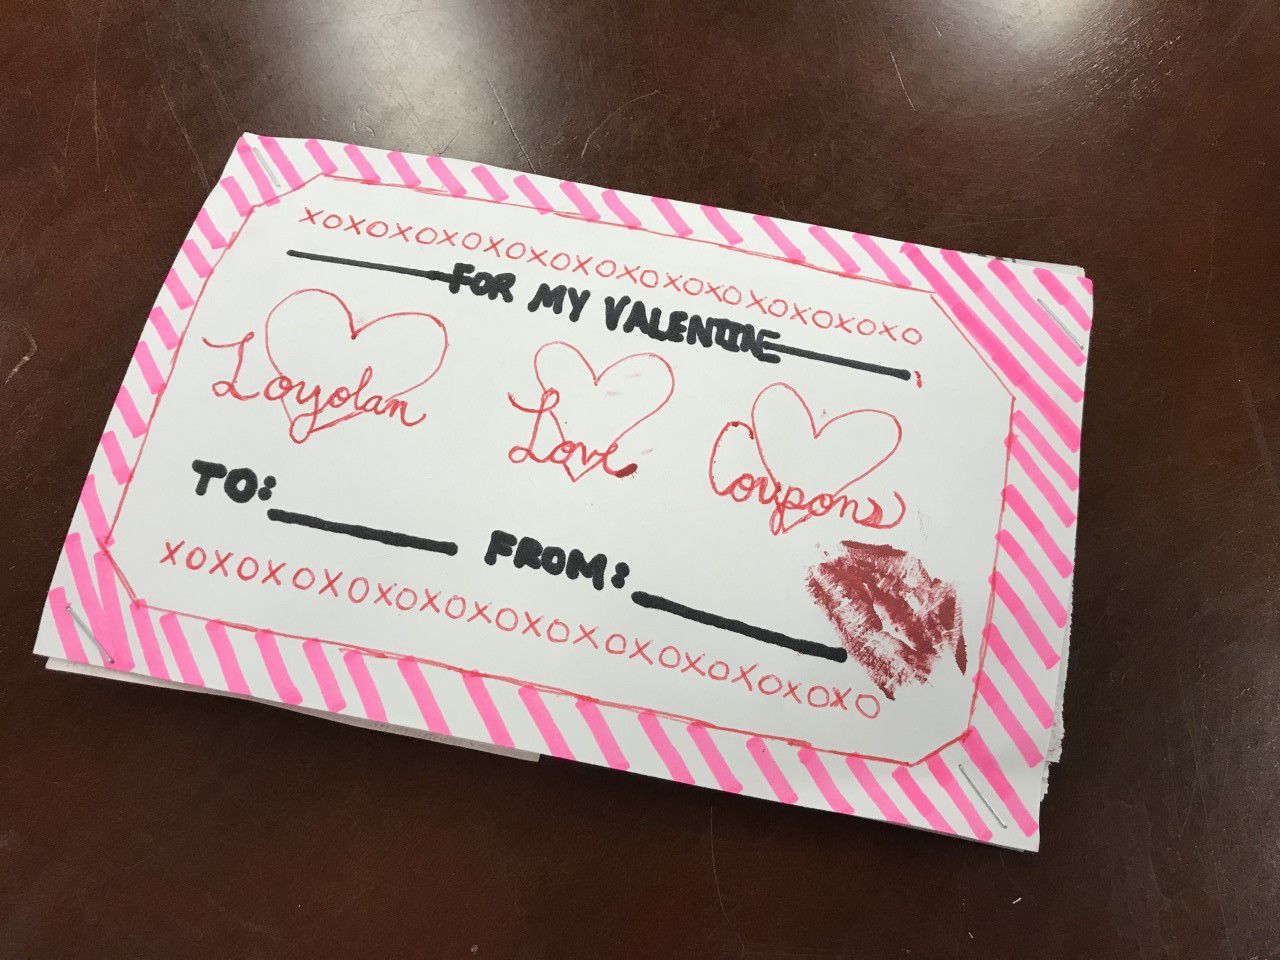 XOXOXOXOXOXOXOXOXOXOXOXOXOXO
FOR MY VALENTINE
Loyolan Love Coupons
TO: FROM:
XOXOXOXOXOXOXOXOXOXOXOXOXOXO